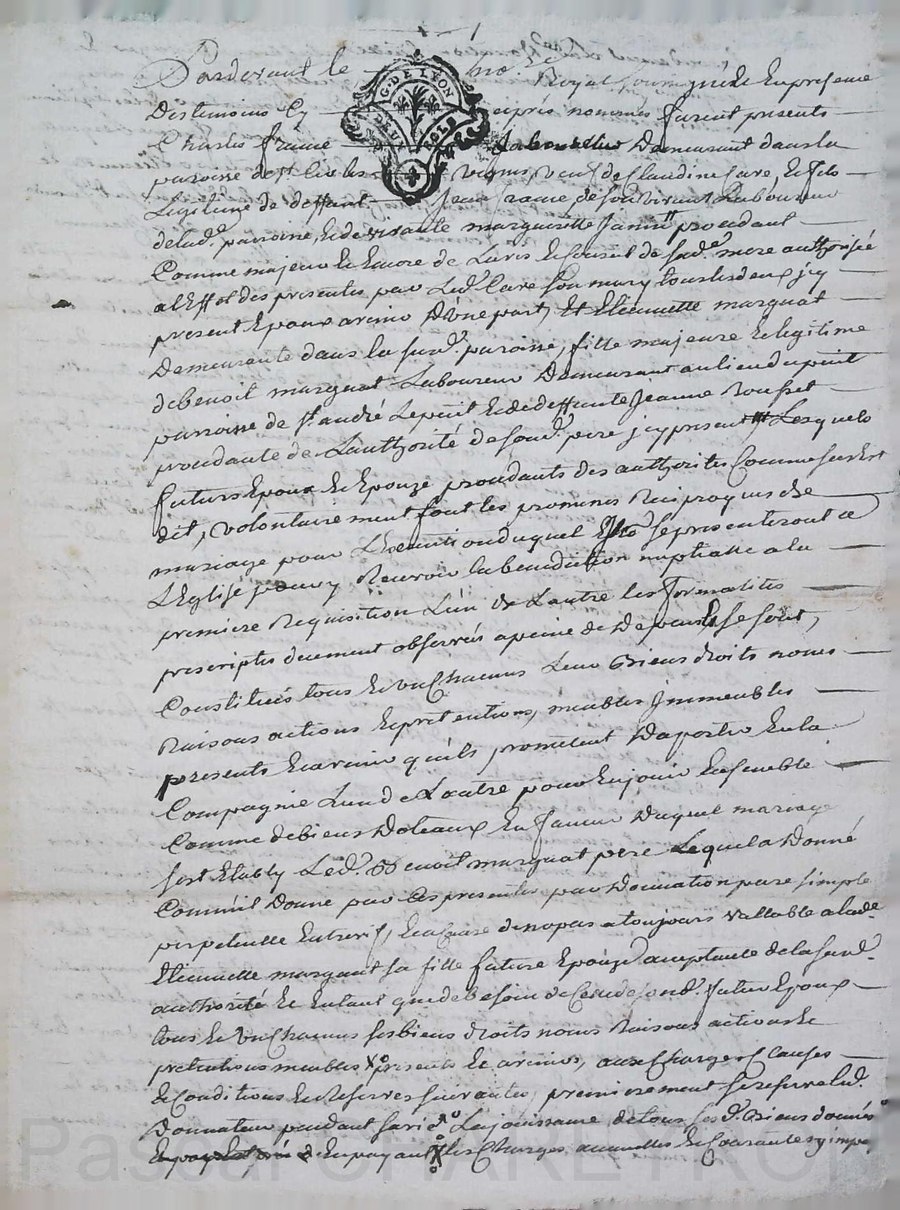 Pardevant le no.re Royal soussigné et en presence
Des temoins cy apres nommés furent presents
Charles frame Laboureur Demeurant dans la
paroisse de st veuf de Claudine fare, et fils
Legitime de deffunt Jean frame de son vivant Laboureur
de lad.e parroisse, et de vivante margueritte procedant
Comme majeur et Encore de L'avis et Conseil de sad.e mere authorisée
a l'Effet des presentes par Led.t fare son mary tous les deux jcy
present Epoux avenir D'une part, Et Etiennette margnat
Demeurante dans la susd.e paroisse, fille majeure et legitime
de benoit margnat Laboureur Demeurant au lieu du
parroisse de st andré Le puit et de deffunte Jeanne Rousset
procedante de L'authorité de sond.t pere jcy present Lesquels
futurs Epoux et Epouze procedants des authorités Comme sus Est
dit, volontairement font les promesses Reciproques de
mariage pour L'Execution duquel se presenteront a
L'Eglise pour y Recevoir la benediction nuptialle a la
premiere Requisition L'un de L'autre les formalités
prescriptes duement observées a peine de Depens, se sont,
Constitués tous et un Chacuns Leur Biens droits noms
Raisons actions et pretentions, meubles jmmeubles
presents et avenir qu'ils promettent D'aporter En la
Compagnie L'un de L'autre pour En jouir Ensemble
Comme de biens Doteaux En faveur Duquel mariage
sest Etably Led.t Benoit margnat pere Lequel a Donné
Comm'il Donne par Ces presentes par Donnation pure simple
perpetuelle Entrevifs, Et a Cause de nopces a toujours vallable a lad.e
Etiennette margnat sa fille future Epouze acceptante de la susd.e
authorité Et Entant que de besoin de Celle de sond.t futur Epoux
tous Et un Chacuns ses biens droits noms Raisons actions Et
pretentions meubles presents Et avenir, aux Charges Clauses
Et Conditions Et Reserves suivantes, premierement se reserve led.t
Donnateur pendant sa vie La jouissance de tous ses d.ts Biens donnés
En payant les Charges annuelles Et Courantes y impo
G. DE LYON
DEUX SOLS
Pascal CHAREYRON